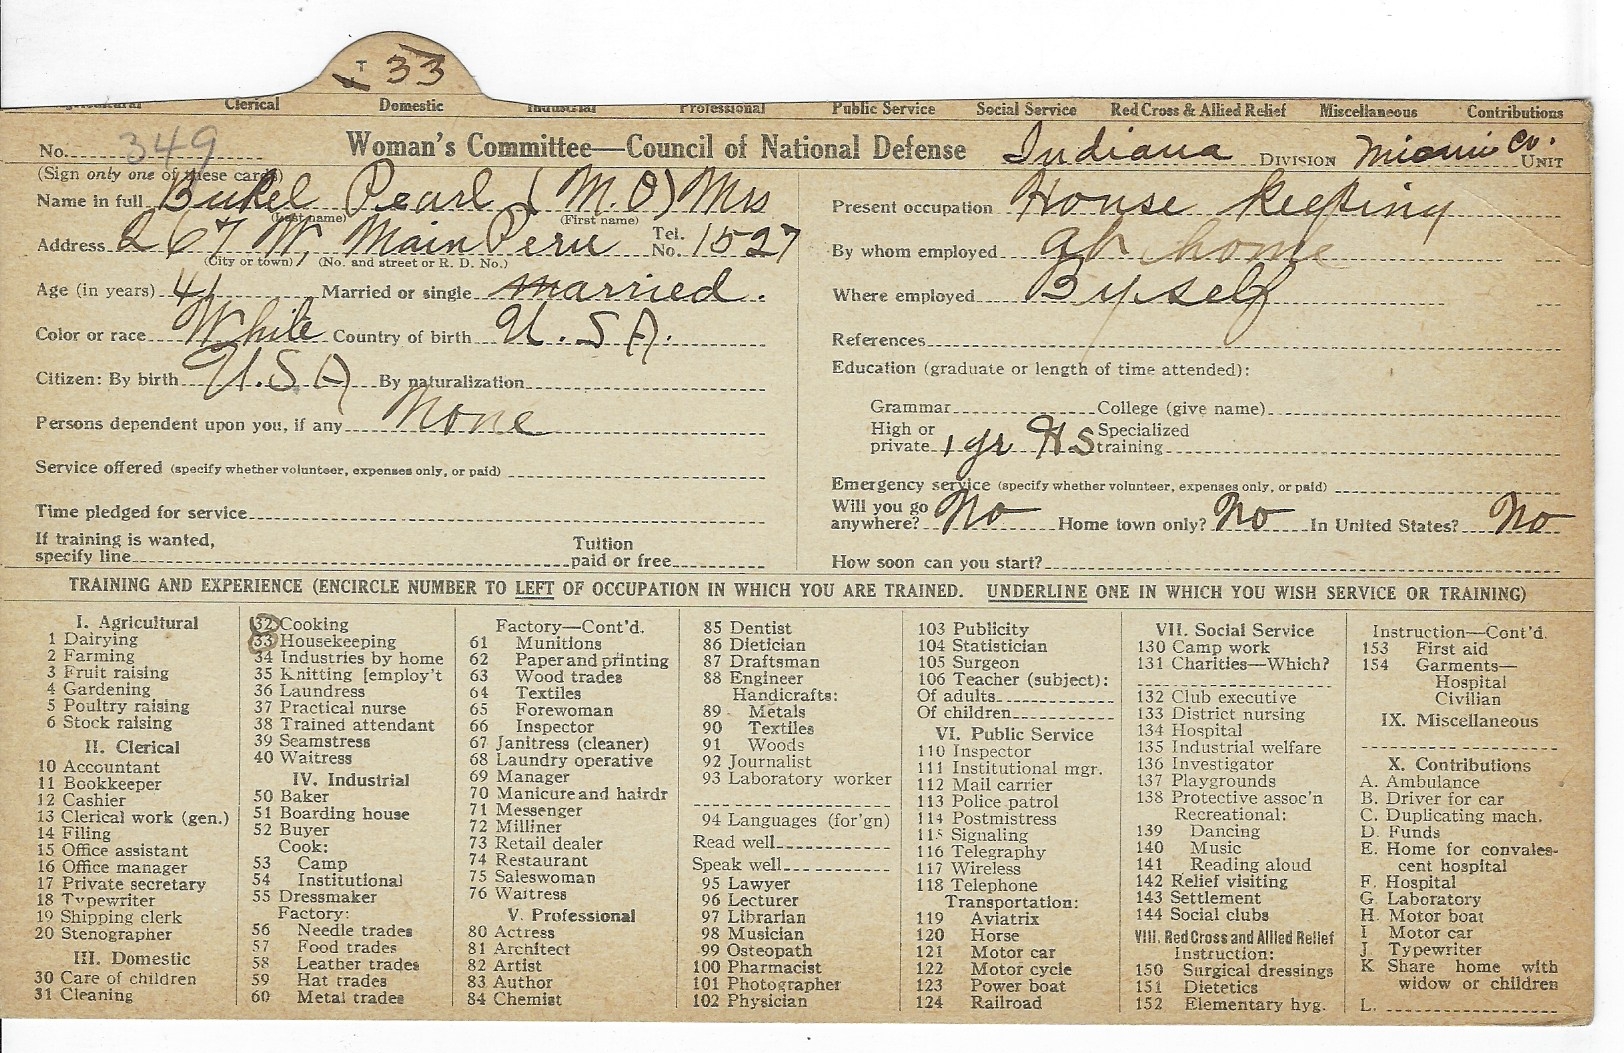 T 33
Agricultural Clerical Domestic Industrial Professional Public Service Social Service Red Cross & Allied Relief Miscellaneous Contributions
No. 349 Woman's Committee—Council of National Defense Indiana DIVISION Miami Co. UNIT
(Sign only one of these cards)
Name in full Bukel Pearl (M.O) Mrs
(Last name) (First name)
Address 267 W, Main Peru Tel. No. 1527
(City or town) (No. and street or R. D. No.)
Age (in years) 41 Married or single married.
Color or race White Country of birth U.S.A.
Citizen: By birth U.S.A By naturalization
Persons dependent upon you, if any None
Service offered (specify whether volunteer, expenses only, or paid)
Time pledged for service
If training is wanted,
specify line Tuition paid or free
Present occupation House keeping
By whom employed at home
Where employed By self
References
Education (graduate or length of time attended):
Grammar College (give name)
High or private 1 yr H.S Specialized training
Emergency service (specify whether volunteer, expenses only, or paid)
Will you go anywhere? No Home town only? No In United States? No
How soon can you start?
TRAINING AND EXPERIENCE (ENCIRCLE NUMBER TO LEFT OF OCCUPATION IN WHICH YOU ARE TRAINED. UNDERLINE ONE IN WHICH YOU WISH SERVICE OR TRAINING)
I. Agricultural
1 Dairying
2 Farming
3 Fruit raising
4 Gardening
5 Poultry raising
6 Stock raising
II. Clerical
10 Accountant
11 Bookkeeper
12 Cashier
13 Clerical work (gen.)
14 Filing
15 Office assistant
16 Office manager
17 Private secretary
18 Typewriter
19 Shipping clerk
20 Stenographer
III. Domestic
30 Care of children
31 Cleaning
32 Cooking
33 Housekeeping
34 Industries by home
35 Knitting [employ't
36 Laundress
37 Practical nurse
38 Trained attendant
39 Seamstress
40 Waitress
IV. Industrial
50 Baker
51 Boarding house
52 Buyer
Cook:
53 Camp
54 Institutional
55 Dressmaker
Factory:
56 Needle trades
57 Food trades
58 Leather trades
59 Hat trades
60 Metal trades
Factory—Cont'd.
61 Munitions
62 Paper and printing
63 Wood trades
64 Textiles
65 Forewoman
66 Inspector
67 Janitress (cleaner)
68 Laundry operative
69 Manager
70 Manicure and hairdr
71 Messenger
72 Milliner
73 Retail dealer
74 Restaurant
75 Saleswoman
76 Waitress
V. Professional
80 Actress
81 Architect
82 Artist
83 Author
84 Chemist
85 Dentist
86 Dietician
87 Draftsman
88 Engineer
Handicrafts:
89 Metals
90 Textiles
91 Woods
92 Journalist
93 Laboratory worker
94 Languages (for'gn)
Read well
Speak well
95 Lawyer
96 Lecturer
97 Librarian
98 Musician
99 Osteopath
100 Pharmacist
101 Photographer
102 Physician
103 Publicity
104 Statistician
105 Surgeon
106 Teacher (subject):
Of adults
Of children
VI. Public Service
110 Inspector
111 Institutional mgr.
112 Mail carrier
113 Police patrol
114 Postmistress
115 Signaling
116 Telegraphy
117 Wireless
118 Telephone
Transportation:
119 Aviatrix
120 Horse
121 Motor car
122 Motor cycle
123 Power boat
124 Railroad
VII. Social Service
130 Camp work
131 Charities—Which?
132 Club executive
133 District nursing
134 Hospital
135 Industrial welfare
136 Investigator
137 Playgrounds
138 Protective assoc'n
Recreational:
139 Dancing
140 Music
141 Reading aloud
142 Relief visiting
143 Settlement
144 Social clubs
VIII. Red Cross and Allied Relief
Instruction:
150 Surgical dressings
151 Dietetics
152 Elementary hyg.
Instruction—Cont'd.
153 First aid
154 Garments—
Hospital
Civilian
IX. Miscellaneous
X. Contributions
A. Ambulance
B. Driver for car
C. Duplicating mach.
D. Funds
E. Home for convales-
cent hospital
F. Hospital
G. Laboratory
H. Motor boat
I Motor car
J. Typewriter
K Share home with
widow or children
L.